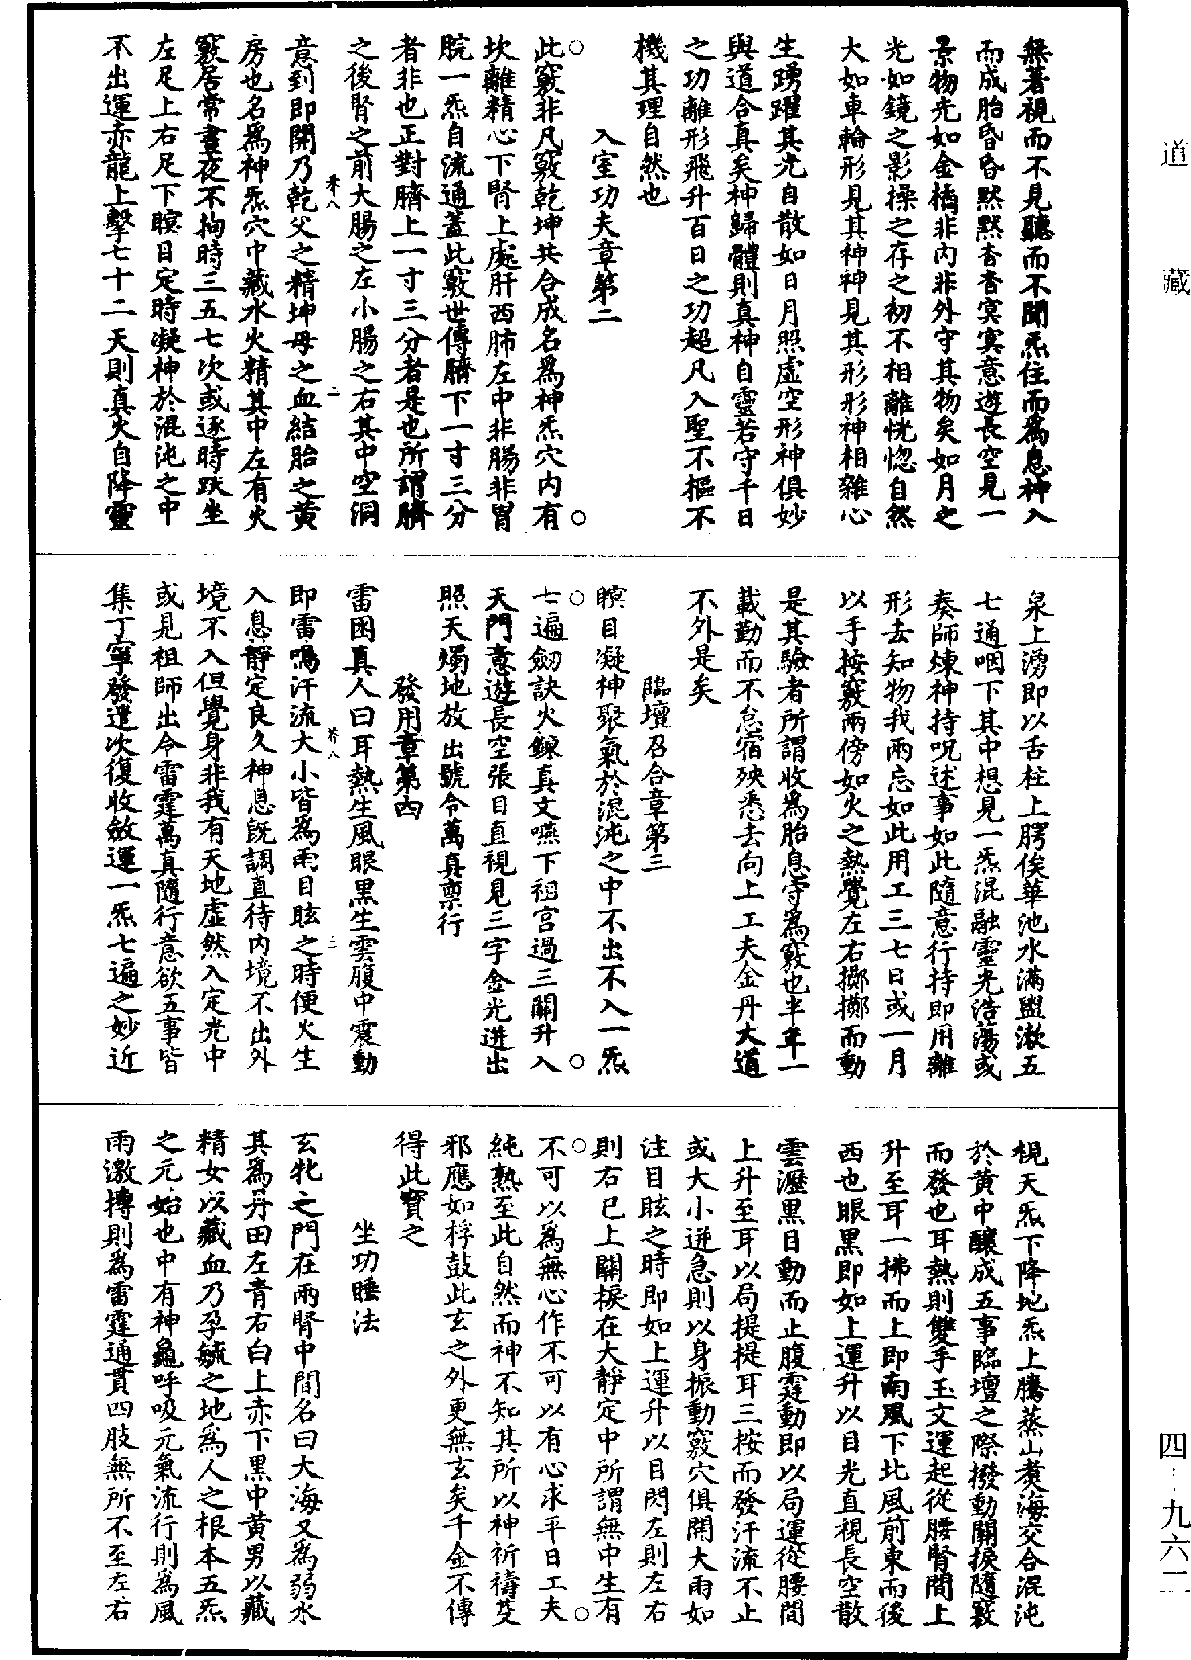 無著視而不見聽而不聞炁住而為息神入
而成胎昏昏默默杳杳冥冥意遊長空見一
景物光如金橘非內非外守其物矣如月之
光如鏡之影操之存之初不相離恍惚自然
大如車輪形見其神神見其形形神相雜心
生踴躍其光自散如日月照虛空形神俱妙
與道合真矣神歸體則真神自靈若守千日
之功離形飛升百日之功超凡入聖不樞不
機其理自然也
入室功夫章第二
此竅非凡竅乾坤共合成名為神炁穴內有
坎離精心下腎上處肝西肺左中非腸非胃
脘一炁自流通蓋此竅世傳臍下一寸三分
者非也正對臍上一寸三分者是也所謂臍
之後腎之前大腸之左小腸之右其中空洞
意到即開乃乾父之精坤母之血結胎之黃
房也名為神炁穴中藏水火精其中左有火
竅居常晝夜不拘時三五七次或逐時趺坐
左足上右足下瞑目定時凝神於混沌之中
不出運赤龍上擊七十二天則真火自降靈
泉上湧即以舌柱上腭俟華池水滿盥漱五
七通咽下其中想見一炁混融靈光浩蕩或
奏師煉神持呪述事如此隨意行持即用離
形去知物我兩忘如此用工三七日或一月
以手按竅兩傍如火之熱覺左右擲擲而動
是其驗者所謂收為胎息守為竅也半年一
載勤而不怠宿殃悉去向上工夫金丹大道
不外是矣
臨壇召合章第三
瞑目凝神聚氣於混沌之中不出不入一炁
七遍劒訣火鍊真文嚥下祖宮過三關升入
天門意遊長空張目直視見三字金光迸出
照天燭地放出號令萬真稟行
發用章第四
雷囷真人曰耳熱生風眼黑生雲腹中震動
即雷鳴汗流大小皆為雨目眩之時便火生
入息靜定良久神息旣調直待內境不出外
境不入但覺身非我有天地虛然入定光中
或見祖師出令雷霆萬真隨行意欲五事皆
集丁寧發遣次復收斂運一炁七遍之妙近
視天炁下降地炁上騰蒸山煑海交合混沌
於黃中釀成五事臨壇之際撥動關捩隨竅
而發也耳熱則雙手玉文運起從腰腎間上
升至耳一拂而上即南風下北風前東而後
西也眼黑即如上運升以目光直視長空散
雲瀝黑目動而止腹霆動即以局運從腰間
上升至耳以局提提耳三按而發汗流不止
或大小迸急則以身振動竅穴俱開大雨如
注目眩之時即如上運升以目閃左則左右
則右已上關捩在大靜定中所謂無中生有
不可以為無心作不可以有心求平日工夫
純熟至此自然而神不知其所以神祈禱芟
邪應如桴鼓此玄之外更無玄矣千金不傳
得此寶之
坐功睡法
玄牝之門在兩腎中間名曰大海又為弱水
其為丹田左青右白上赤下黑中黃男以藏
精女以藏血乃孕毓之地為人之根本五炁
之元始也中有神龜呼吸元氣流行則為風
雨激摶則為雷霆通貫四肢無所不至左右
道藏
四‥九六二